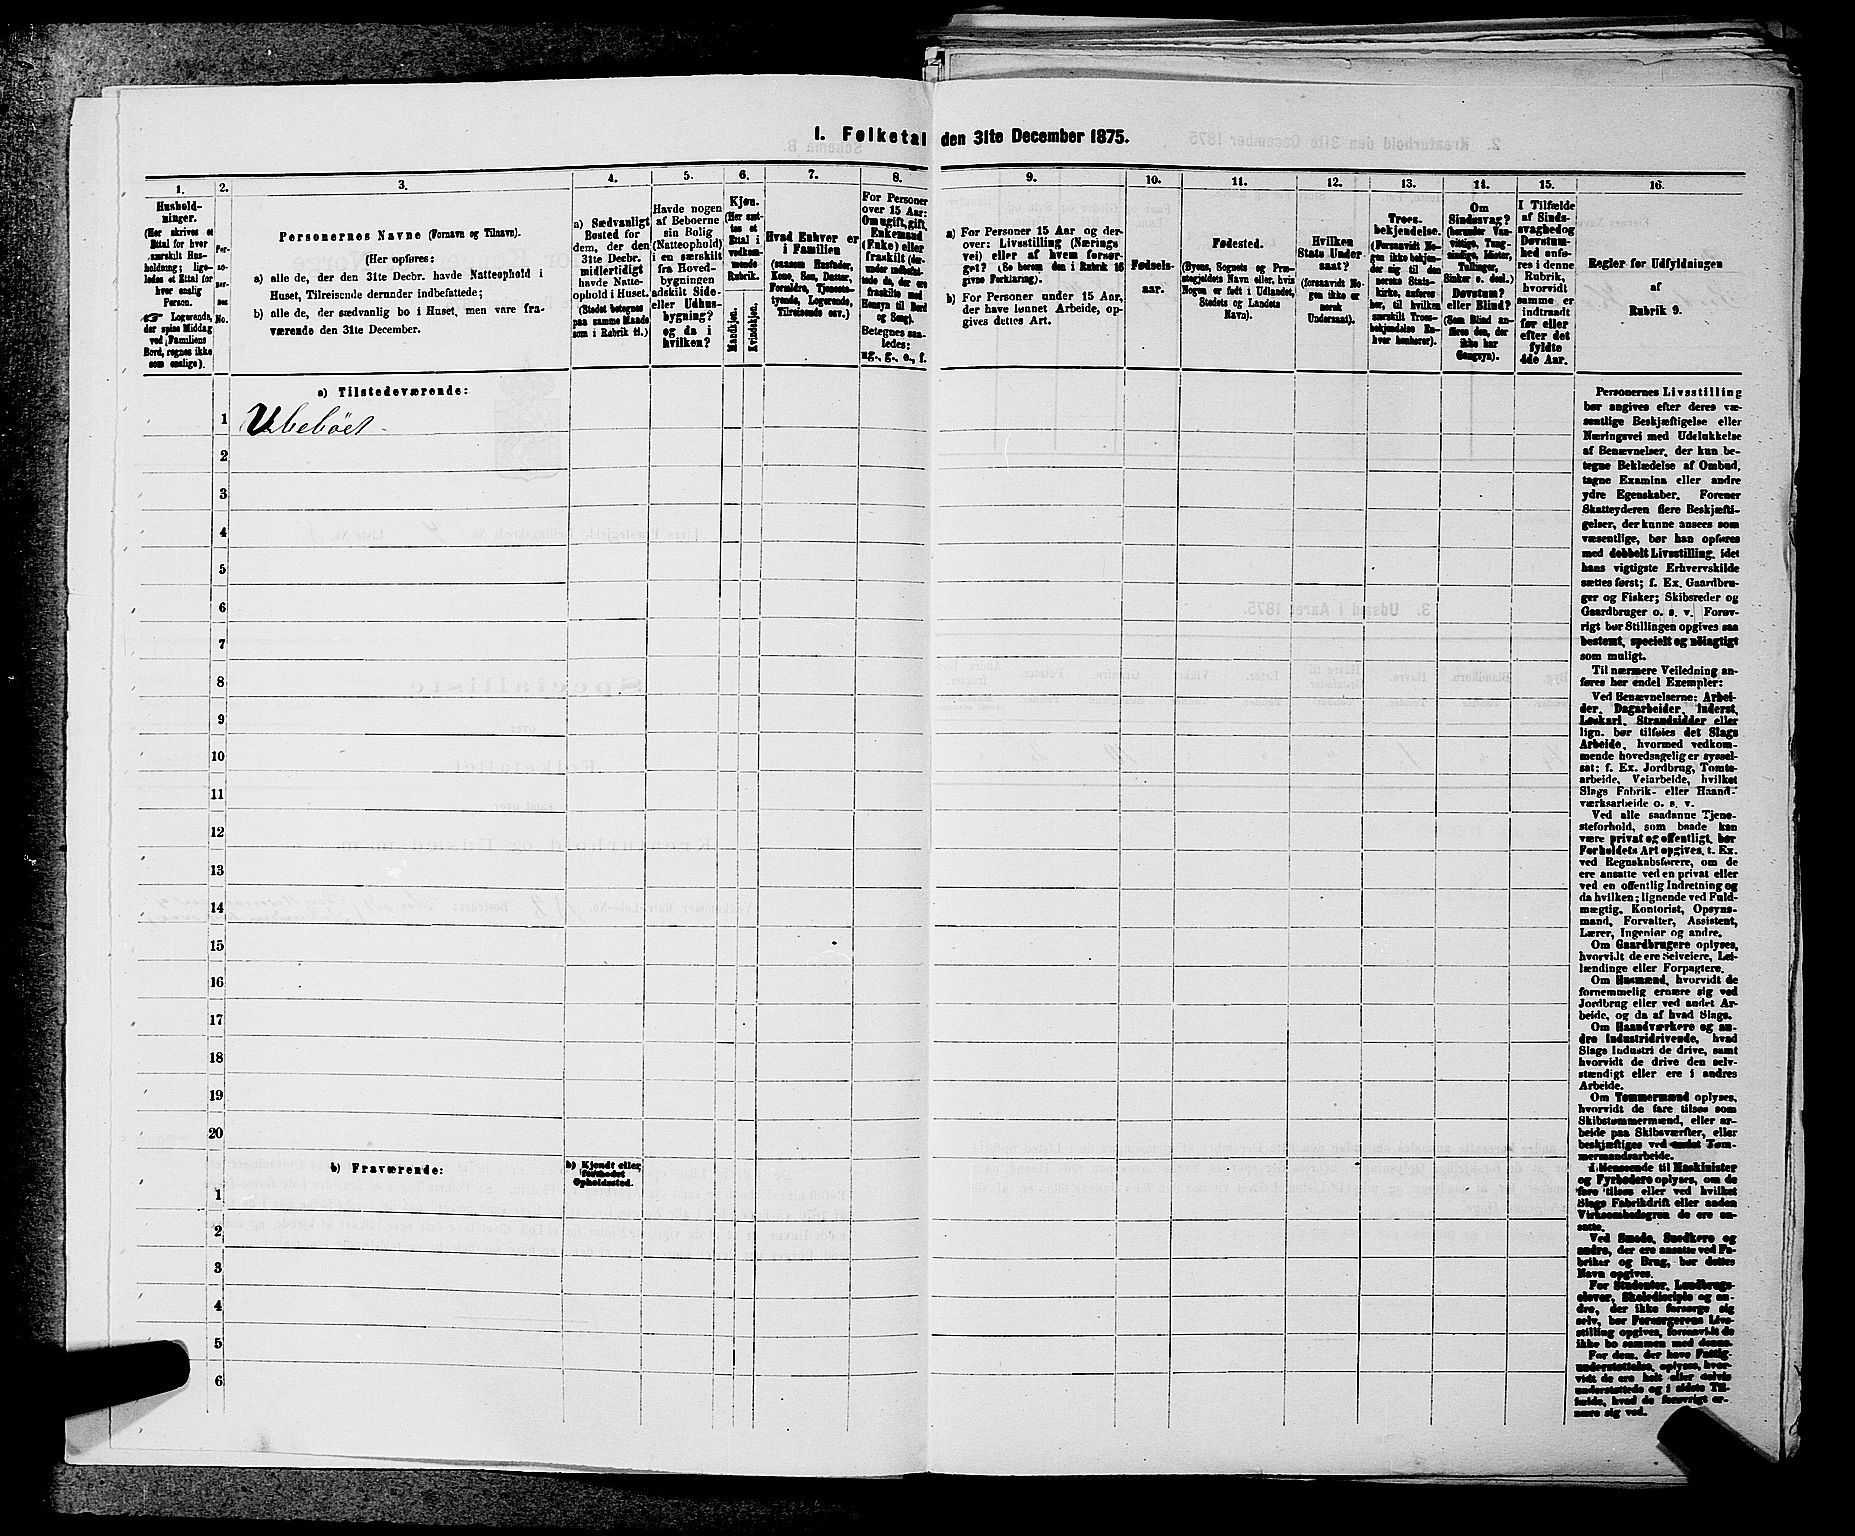 I. Folketal den 31te December 1875.
1.
2.
3.
4.
5.
6.
7.
8.
9.
10.
11.
12.
13.
14.
15.
16.
Hushold-
ninger.
(Her skrives et
Ettal for hver
særskilt Hus-
holdning; lige-
ledes et Ettal for
hver enslig
Person.
☞ Logerende,
der spise Middag
ved Familiens
Bord, regnes ikke
som enslige).
Per-
so-
ner-
nes
No.
Personernes Navne (Fornavn og Tilnavn).
(Her opføres:
a) alle de, der den 31te Decbr. havde Natteophold i
Huset, Tilreisende derunder indbefattede;
b) alle de, der sædvanlig bo i Huset, men vare fra-
værende den 31te December.
a) Sædvanligt
Bosted for
dem, der den
31te Decbr.
midlertidigt
havde Natte-
ophold i Huset.
(Stedet betegnes
paa samme Maade
som i Rubrik 11.)
Havde nogen
af Beboerne
sin Bolig
(Natteophold)
i en særskilt
fra Hoved-
bygningen
adskilt Side-
eller Udhus-
bygning?
og da i
hvilken?
Kjøn.
(Her sæt-
tes et
Ettal i
vedkom-
mende
Rubrik.
Mandkjøn.
Kvindekjøn.
Hvad Enhver er
i Familien
(saasom Husfader,
Kone, Søn, Datter,
Forældre, Tjeneste-
tyende, Logerende,
Tilreisende osv.)
For Personer
over 15 Aar:
Om ugift, gift,
Enkemand
(Enke) eller
fraskilt (der-
under indbefat-
tede de, der ere
fraskilte med
Hensyn til Bord
og Seng).
Betegnes saa-
ledes:
ug., g., e., f.
a) For Personer 15 Aar og der-
over: Livsstilling (Nærings
vei) eller af hvem forsør-
get? (Se herom den i Rubrik 16
givne Forklaring).
b) For Personer under 15 Aar,
der have lønnet Arbeide, op-
gives dettes Art.
Fødsels-
aar.
Fødested.
(Byens, Sognets og Præ-
stegjældets Navn eller, hvis
Nogen er født i Udlandet,
Stedets og Landets
Navn).
Hvilken
Stats Under-
saat?
(forsaavidt No-
gen ikke er
norsk
Undersaat).
Troes-
bekjendelse.
(Forsaavidt No-
gen ikke bekjen-
der sig til den
norske Stats-
kirke, anføres
her, til hvilken
særskilt Troes-
bekjendelse En-
hver henhører).
Om
Sindssvag?
(herunder Van-
vittige, Tung-
sindige, Idioter,
Tullinger,
Sinker o. desl.)
Døvstum?
eller Blind?
(Som Blind an-
føres den, der
ikke har
Gangsyn).
I Tilfælde
af Sinds-
svaghed og
Døvstum-
hed anfø-
res i denne
Rubrik,
hvorvidt
samme er
indtraadt
før eller
efter det
fyldte
4de Aar.
Regler for Udfyldningen
af
Rubrik 9.
a) Tilstedeværende:
1 Ubeboet
2
3
4
5
6
7
8
9
10
11
12
13
14
15
16
17
18
19
20
b) Fraværende:
b) Kjendt eller
formodet
Opholdssted.
1
2
3
4
5
6
Personernes Livsstilling
bør angives efter deres væ-
sentlige Beskjæftigelse eller
Næringsvei med Udelukkelse
af Benævnelser, der kun be-
tegne Beklædelse af Ombud,
tagne Examina eller andre
ydre Egenskaber. Forener
Skatteyderen flere Beskjæfti-
gelser, der kunne ansees som
væsentlige, bør han opføres
med dobbelt Livsstilling, idet
hans vigtigste Erhvervskilde
sættes først; f. Ex. Gaardbru-
ger og Fisker; Skibsreder og
Gaardbruger o. s. v. Forøv-
rigt bør Stillingen opgives saa
bestemt, specielt og nøiagtigt
som muligt.
Til nærmere Veiledning an-
føres her endel Exempler:
Ved Benævnelserne: Arbei-
der, Dagarbeider, Inderst,
Løskarl, Strandsidder eller
lign. bør tilføies det Slags
Arbeide, hvormed vedkom-
mende hovedsagelig er syssel-
sat; f. Ex. Jordbrug, Tomte-
arbeide, Veiarbeide, hvilket
Slags Fabrik- eller Haand-
værksarbeide o. s. v.
Ved alle saadanne Tjene-
steforhold, som baade kan
være privat og offentligt, bør
Forholdets Art opgives, t. Ex.
ved Regnskabsførere, om de
ere ansatte ved en privat eller
ved en offentlig Indretning og
da hvilken; lignende ved Fuld-
mægtig, Kontorist, Opsyns-
mand, Forvalter, Assistent,
Lærer, Ingeniør og andre.
Om Gaardbrugere oplyses,
hvorvidt de ere Selveiere, Lei-
lændinge eller Forpagtere.
Om Husmænd, hvorvidt de
fornemmelig ernære sig ved
Jordbrug eller ved andet Ar-
beide, og da af hvad Slags.
Om Haandværkere og an-
dre Industridrivende, hvad
Slags Industri de drive, samt
hvorvidt de drive den selv-
stændigt eller ere i andres
Arbeide.
Om Tømmermænd oplyses,
hvorvidt de fare tilsøs som
Skibstømmermænd, eller ar-
beide paa Skibsværfter, eller
beskjæftiges ved andet Tøm-
mermandsarbeide.
I Henseende til Maskinister
og Fyrbødere oplyses, om de
fare tilsøs eller ved hvilket
Slags Fabrikdrift eller anden
Virksomhedsgren de ere an-
satte.
Ved Smede, Snedkere og
andre, der ere ansatte ved Fa-
briker og Brug, bør dettes
Navn opgives.
For Studenter, Landbrugs-
elever, Skoledisciple og an-
dre, der ikke forsørge sig
selv, bør Forsørgerens Livs-
stilling opgives, forsaavidt de
ikke bo sammen med denne.
For dem, der have Fattig-
understøttelse, oplyses, hvor-
vidt de ere helt eller delvis
understøttede og i sidste Til-
fælde, hvad de forøvrigt er-
nære sig ved.